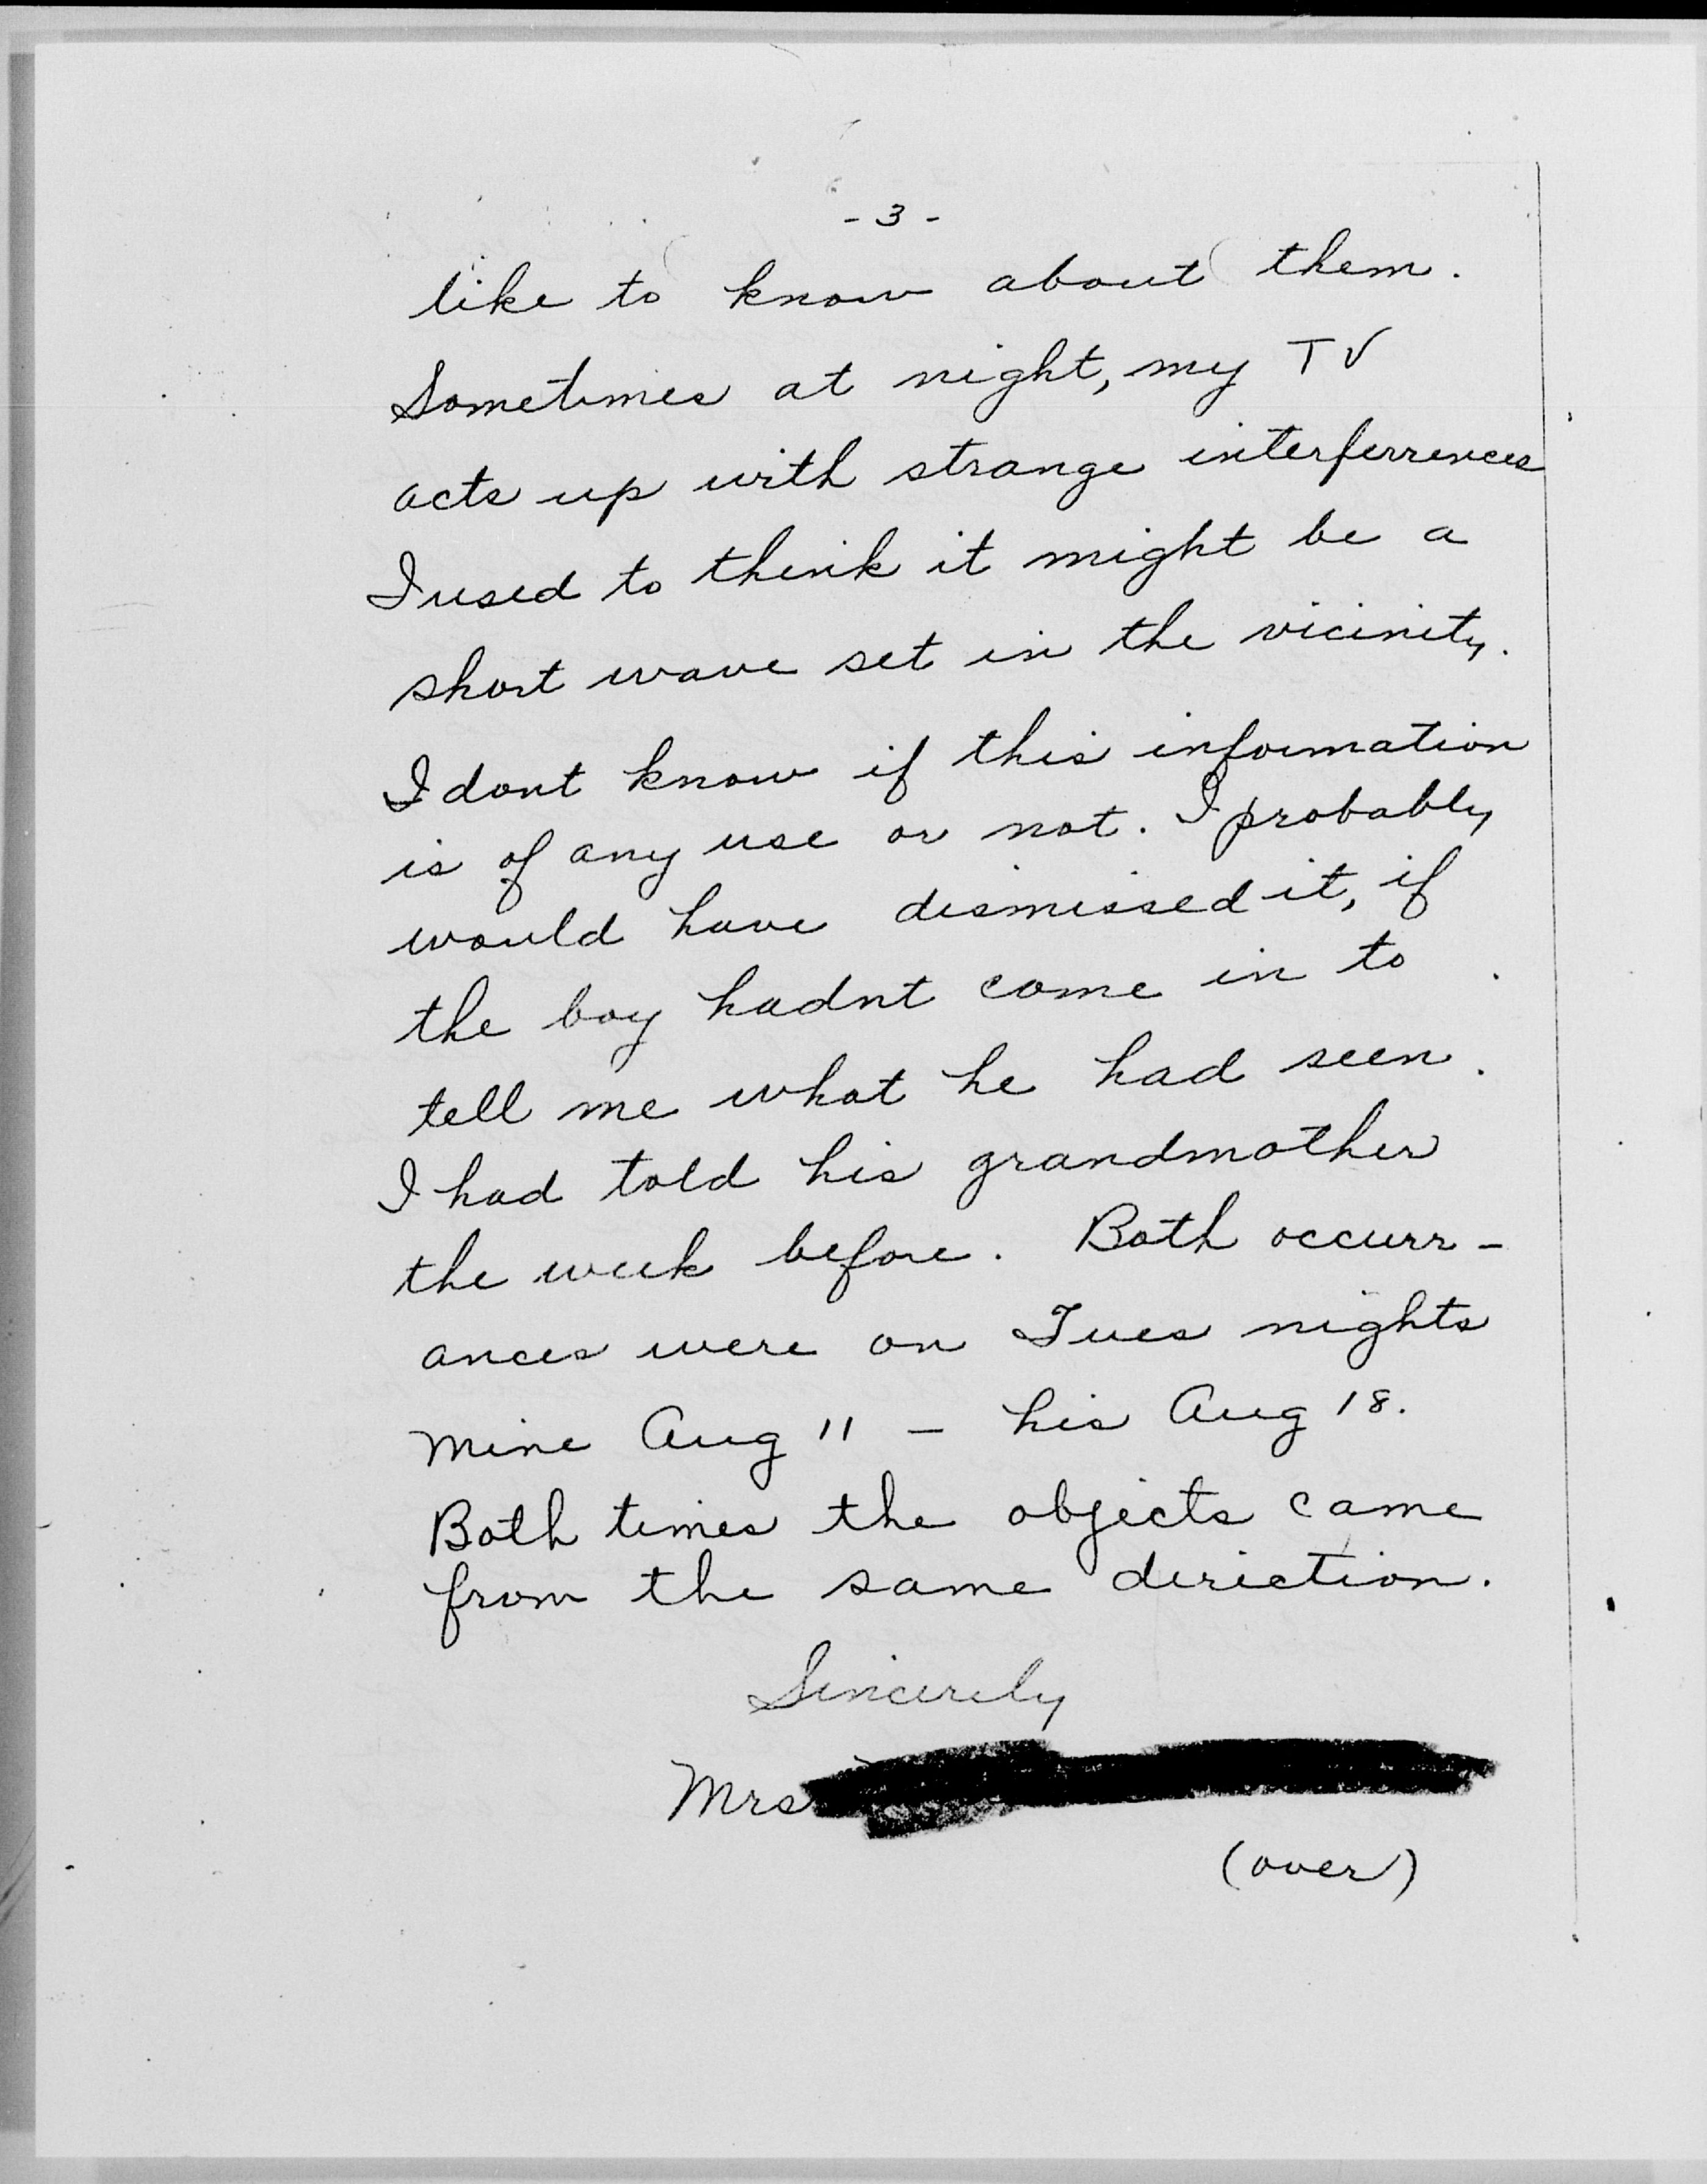 - 3 -
like to know about them.
Sometimes at night, my TV
acts up with strange interferrences
I used to think it might be a
short wave set in the vicinity.
I dont know if this information
is of any use or not. I probably
would have dismissed it, if
the boy hadnt come in to
tell me what he had seen.
I had told his grandmother
the week before. Both occurr-
ances were on Tues nights
mine Aug 11 - his Aug 18.
Both times the objects came
from the same deriction.
Sincerely
Mrs
(over)